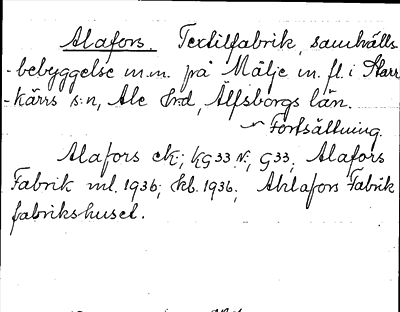 Alafors. Textilfabrik, samhälls
-bebyggelse m.m. på Mälje m. fl. i Starr
-kärrs s:n, Ale hd, Älfsborgs län.
~ Fortsättning.
Alafors ek.; KG 33 N., G33, Alafors
Fabrik ml. 1936; kb. 1936, Ahlafors Fabrik
fabrikshuset.